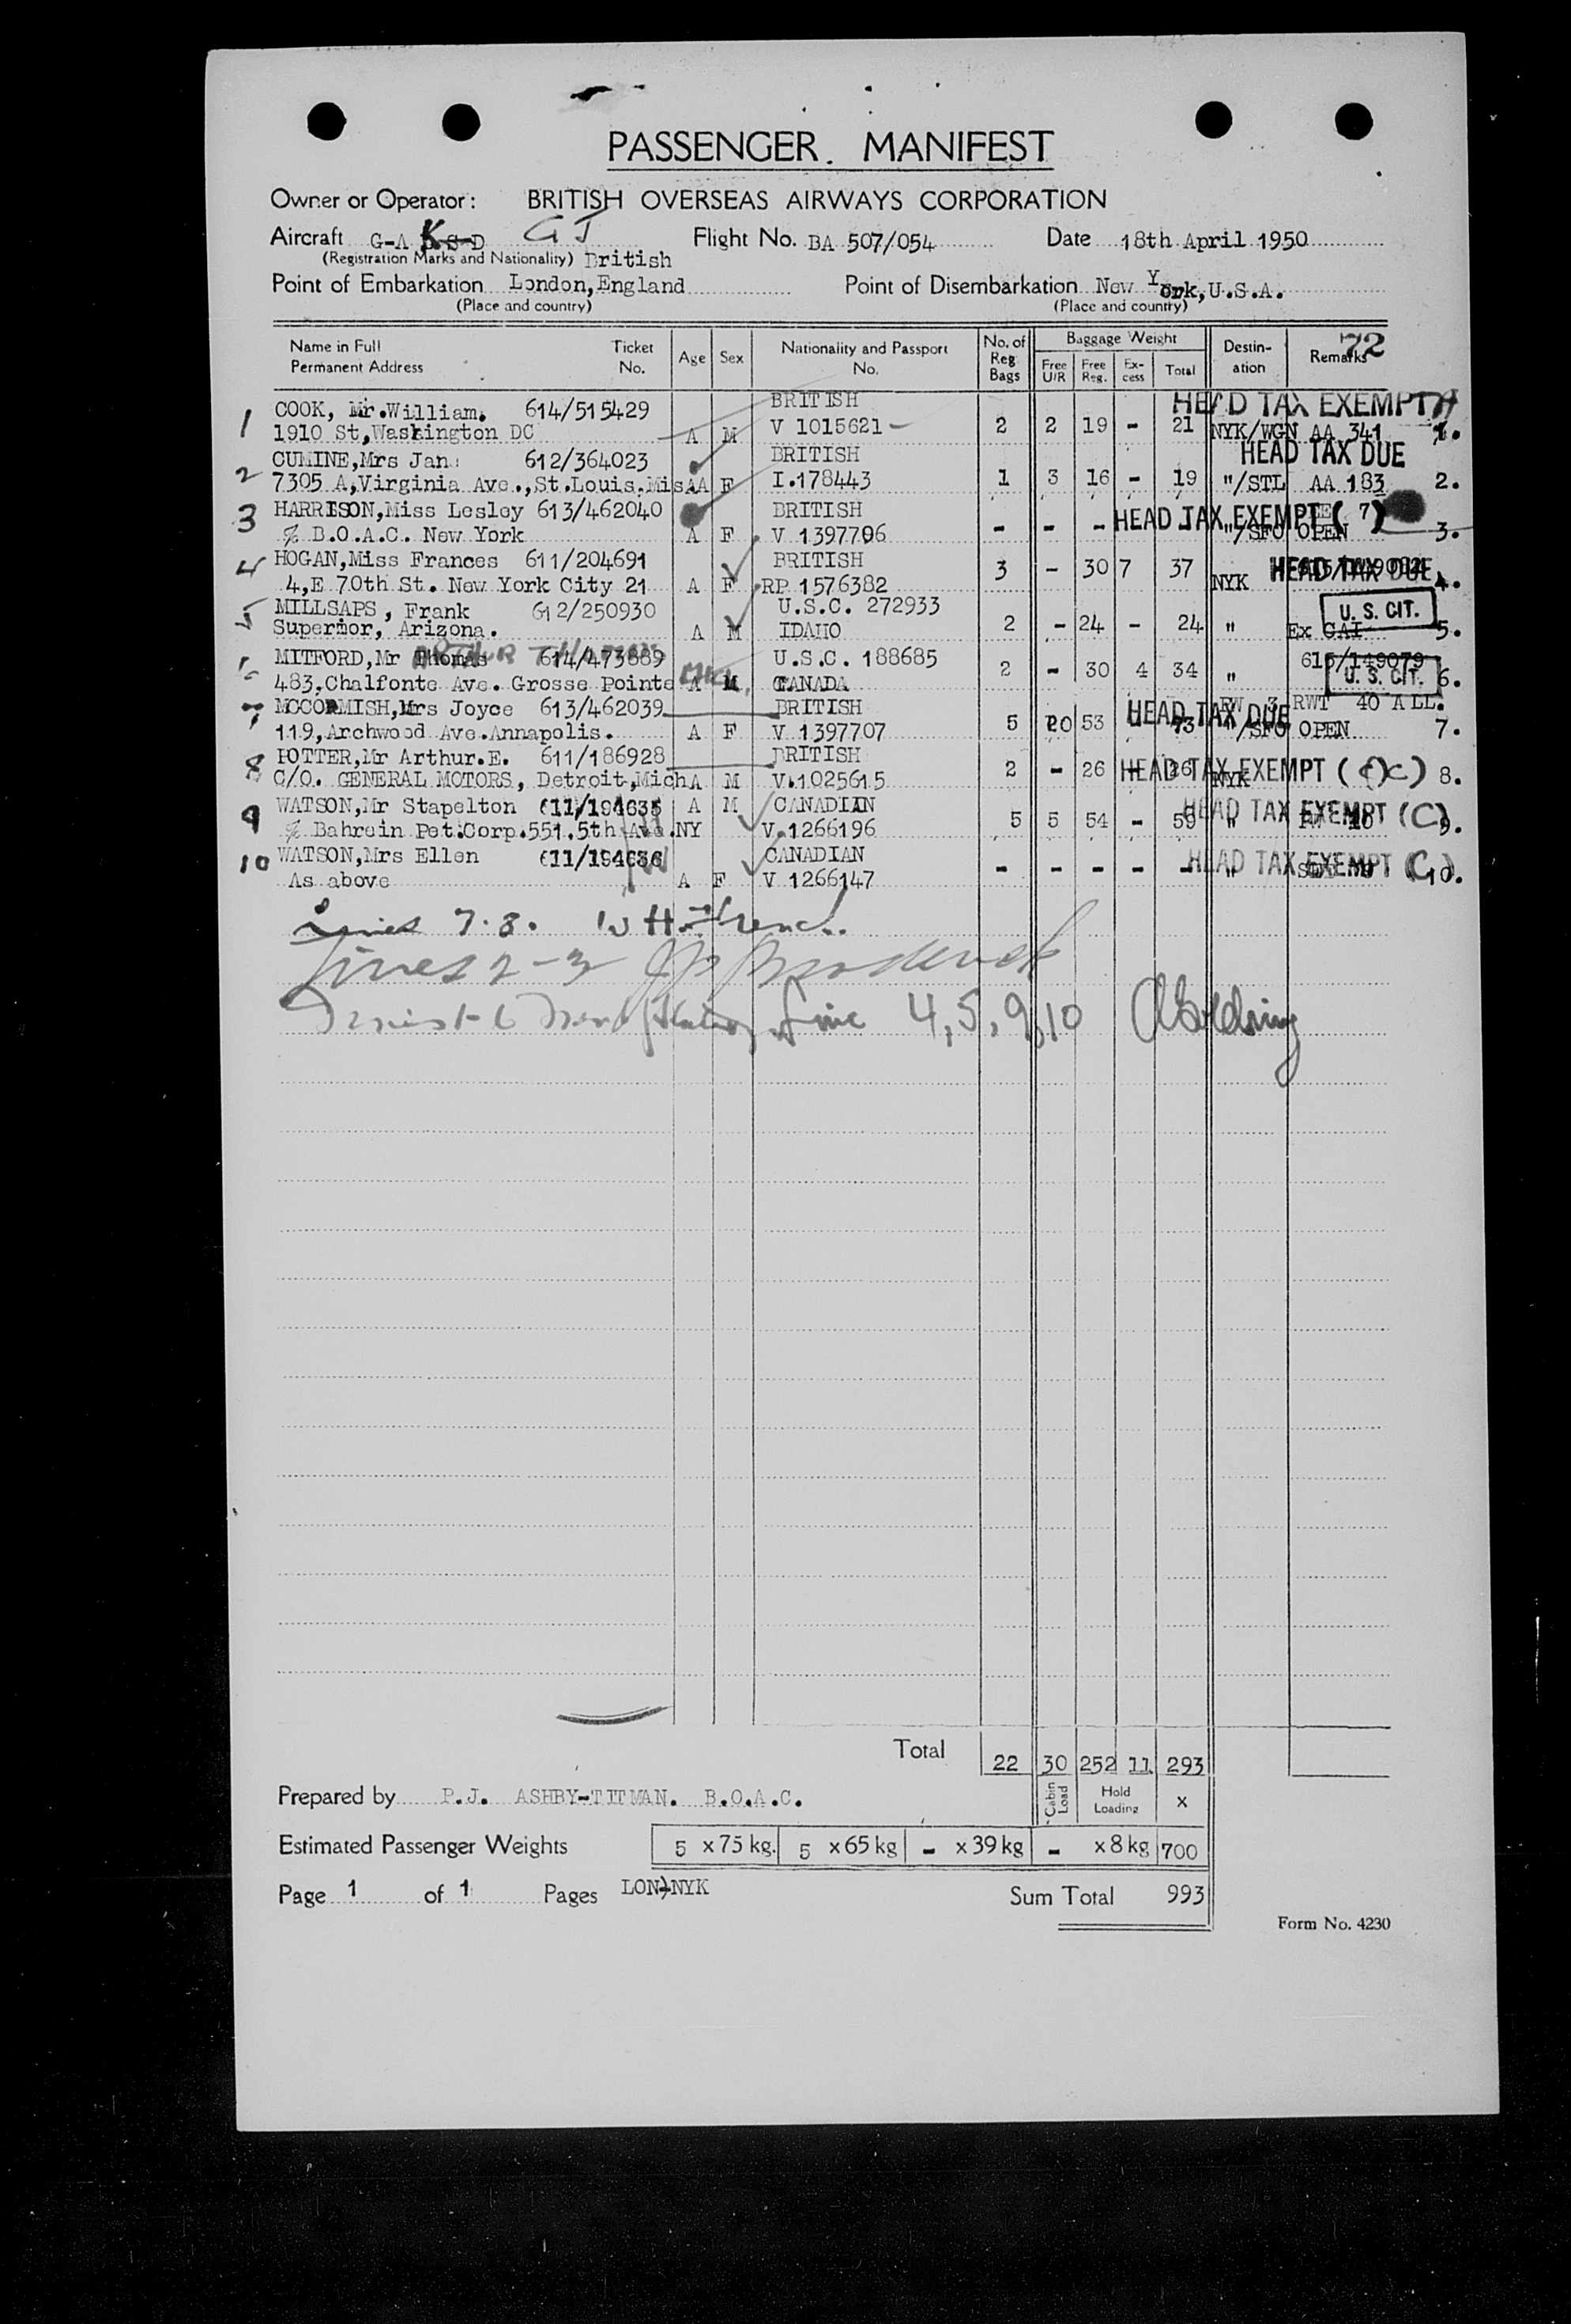 PASSENGER MANIFEST
Owner or Operator: BRITISH OVERSEAS AIRWAYS CORPORATION
Aircraft G-A K S-D G J Flight No. BA 507/054 Date 18th April 1950
(Registration Marks and Nationality) British
Point of Embarkation London,England Point of Disembarkation New York,U.S.A.
(Place and country) (Place and country)
72
Name in Full Ticket Age Sex Nationality and Passport No. of Baggage Weight Destin- Remarks
Permanent Address No. No. Reg Bags Free U/R Free Reg. Ex-cess Total ation
1 COOK, Mr.William. 614/515429 BRITISH HEAD TAX EXEMPT
1910 St,Washington DC A M V 1015621 2 2 19 - 21 NYK/WGN AA 341 1.
2 CUMINE,Mrs Jane 612/364023 BRITISH HEAD TAX DUE
7305 A,Virginia Ave.,St.Louis.Mis A F I.178443 1 3 16 - 19 "/STL AA 183 2.
3 HARRISON,Miss Lesley 613/462040 BRITISH HEAD TAX EXEMPT ( 7 )
% B.O.A.C. New York A F V 1397706 - - - "/SFO OPEN 3.
4 HOGAN,Miss Frances 611/204691 BRITISH HEAD TAX DUE
4,E 70th St. New York City 21 A F RP 1576382 3 - 30 7 37 NYK 4.
5 MILLSAPS, Frank 612/250930 U.S.C. 272933 U. S. CIT.
Superior, Arizona. A M IDAHO 2 - 24 - 24 " Ex CAI 5.
MITFORD,Mr Thomas ARTHUR THOMAS 614/473889 U.S.C. 188685 615/149079
483,Chalfonte Ave. Grosse Pointe MICH. A M CANADA 2 - 30 4 34 " U. S. CIT. 6.
7 MCCORMISH,Mrs Joyce 613/462039 BRITISH HEAD TAX DUE RW 3 RWT 40 ALL.
119,Archwood Ave.Annapolis. A F V 1397707 5 20 53 - 73 "/SFO OPEN 7.
8 POTTER,Mr Arthur.E. 611/186928 BRITISH
C/O. GENERAL MOTORS, Detroit,Mich A M V.1025615 2 - 26 - 26 NYK HEAD TAX EXEMPT 8.
9 WATSON,Mr Stapelton 611/194635 A M CANADIAN HEAD TAX EXEMPT (C)
% Bahrein Pet.Corp.551.5th Ave.NY V.1266196 5 5 54 - 59 " 9.
10 WATSON,Mrs Ellen 611/194636 CANADIAN HEAD TAX EXEMPT (C)
As above A F V 1266147 - - - - - " 10.
Lines 7.8.
Lines 2-3
Line 4,5,9,10
Total 22 30 252 11 293
Prepared by P.J. ASHBY-TITMAN. B.O.A.C. Cabin Load Hold Loading x
Estimated Passenger Weights 5 x 75 kg. 5 x 65 kg - x 39 kg - x 8 kg 700
Page 1 of 1 Pages LON-NYK Sum Total 993
Form No. 4230